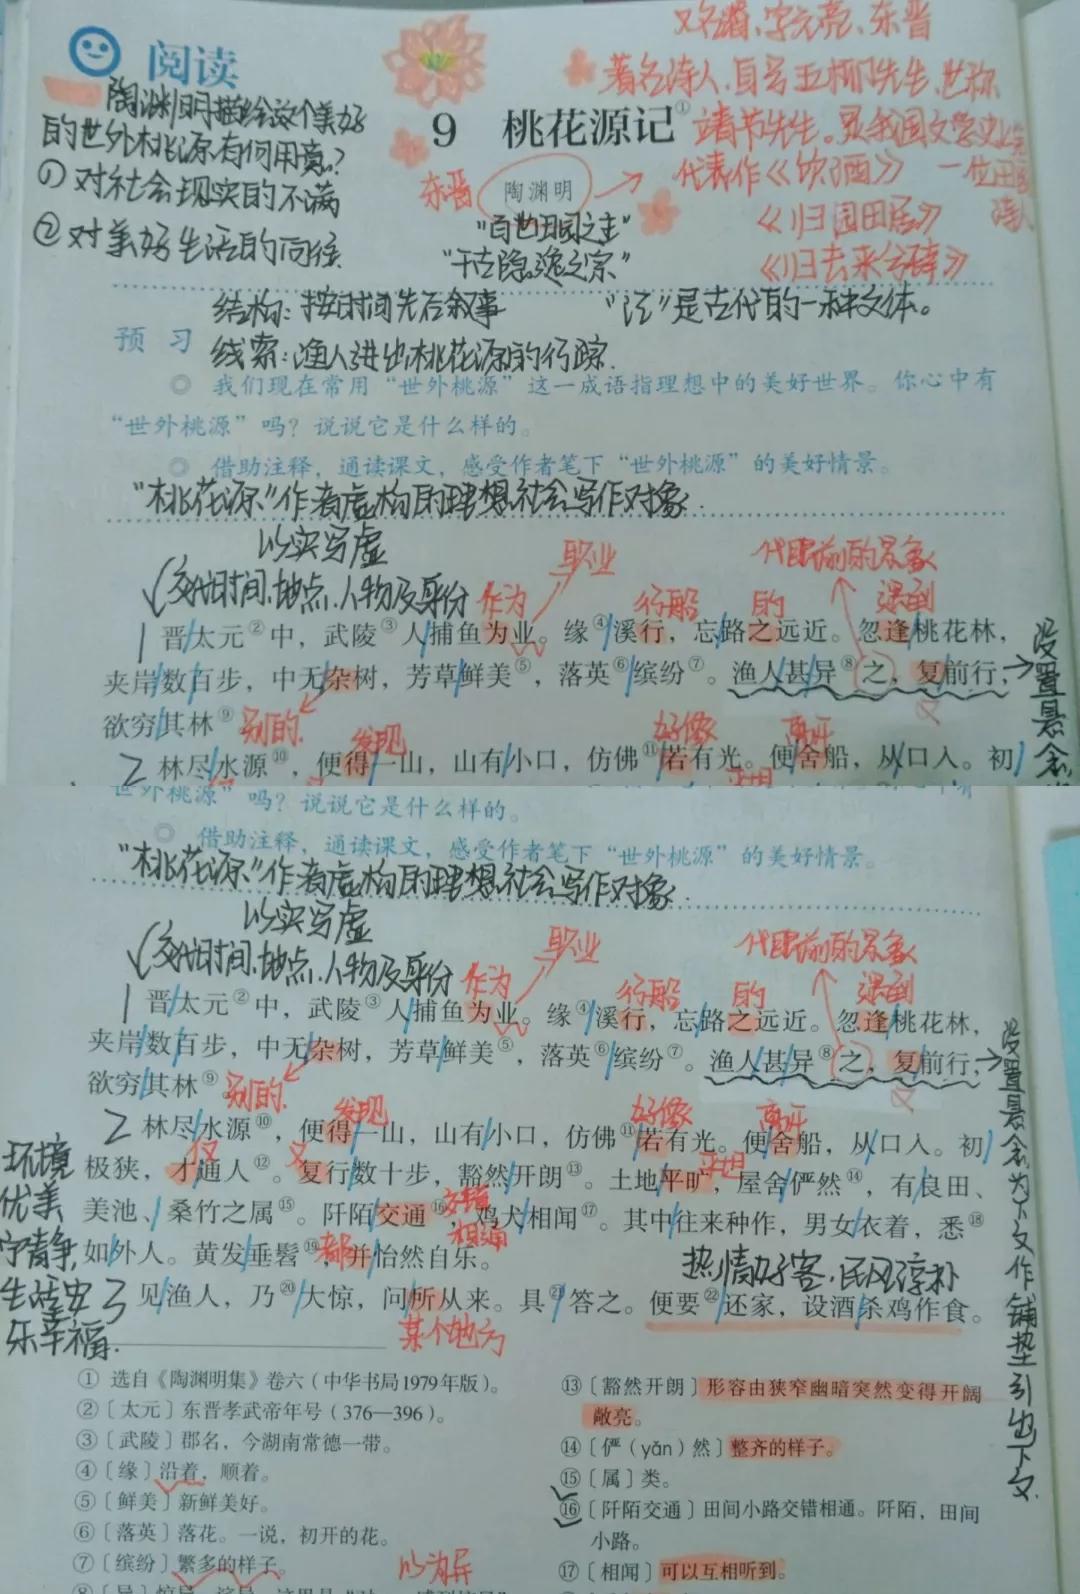 阅读
又名潜、字元亮、东晋
著名诗人、自号五柳先生、世称
靖节先生。是我国文学史上
一位田园
诗人
代表作《饮酒》
《归园田居》
《归去来兮辞》
陶渊明描绘这个美好
的世外桃源有何用意?
① 对社会现实的不满
② 对美好生活的向往
9 桃花源记①
东晋
陶渊明
"百世田园之主"
"千古隐逸之宗"
结构:按时间先后叙事
"记"是古代的一种文体。
线索:渔人进出桃花源的行踪.
预习
◎ 我们现在常用“世外桃源”这一成语指理想中的美好世界。你心中有
“世外桃源”吗?说说它是什么样的。
◎ 借助注释,通读课文,感受作者笔下“世外桃源”的美好情景。
"桃花源"作者虚构的理想社会写作对象.
以实写虚
交代时间、地点、人物及身份
作为
职业
行船
的
代眼前的景象
遇到
1 晋/太元②中,武陵③人/捕鱼为业。缘④/溪行,忘/路之远近。忽逢/桃花林,
夹岸/数百步,中无/杂树,芳草/鲜美⑤,落英⑥/缤纷⑦。渔人/甚/异⑧之,复/前行,
欲穷/其林⑨。
别的.
又
发现
好像
离开
设置悬念
2 林尽/水源⑩,便得/一山,山有/小口,仿佛⑪/若有光。便/舍船,从/口入。初/
世外桃源”吗?说说它是什么样的。
◎ 借助注释,通读课文,感受作者笔下“世外桃源”的美好情景。
"桃花源"作者虚构的理想社会写作对象.
以实写虚
交代时间、地点、人物及身份
作为
职业
行船
的
代眼前的景象
遇到
1 晋/太元②中,武陵③人/捕鱼为业。缘④/溪行,忘/路之远近。忽逢/桃花林,
夹岸/数百步,中无/杂树,芳草/鲜美⑤,落英⑥/缤纷⑦。渔人/甚/异⑧之,复/前行,
欲穷/其林⑨。
别的.
又
发现
好像
离开
2 林尽/水源⑩,便得/一山,山有/小口,仿佛⑪/若有光。便/舍船,从/口入。初/
仅
又
平坦
极狭,才/通人⑫。复/行数十步,豁然/开朗⑬。土地/平旷,屋舍/俨然⑭,有/良田、
美池、/桑竹之属⑮。阡陌/交通⑯,鸡犬/相闻⑰。其中/往来种作,男女/衣着,悉⑱
交错
相通
如/外人。黄发/垂髫⑲,并/怡然自乐。
都
热情好客,民风淳朴
3 见/渔人,乃⑳/大惊,问/所从来。具㉑/答之。便要㉒/还家,设酒/杀鸡作食。
某个地方
环境
优美
宁静,
生活安
乐幸福.
设置悬念为下文作铺垫引出下文.
① 选自《陶渊明集》卷六(中华书局1979年版)。
②〔太元〕东晋孝武帝年号(376—396)。
③〔武陵〕郡名,今湖南常德一带。
④〔缘〕沿着,顺着。
⑤〔鲜美〕新鲜美好。
⑥〔落英〕落花。一说,初开的花。
⑦〔缤纷〕繁多的样子。
以为异
⑬〔豁然开朗〕形容由狭窄幽暗突然变得开阔
敞亮。
⑭〔俨(yǎn)然〕整齐的样子。
⑮〔属〕类。
⑯〔阡陌交通〕田间小路交错相通。阡陌,田间
小路。
⑰〔相闻〕可以互相听到。